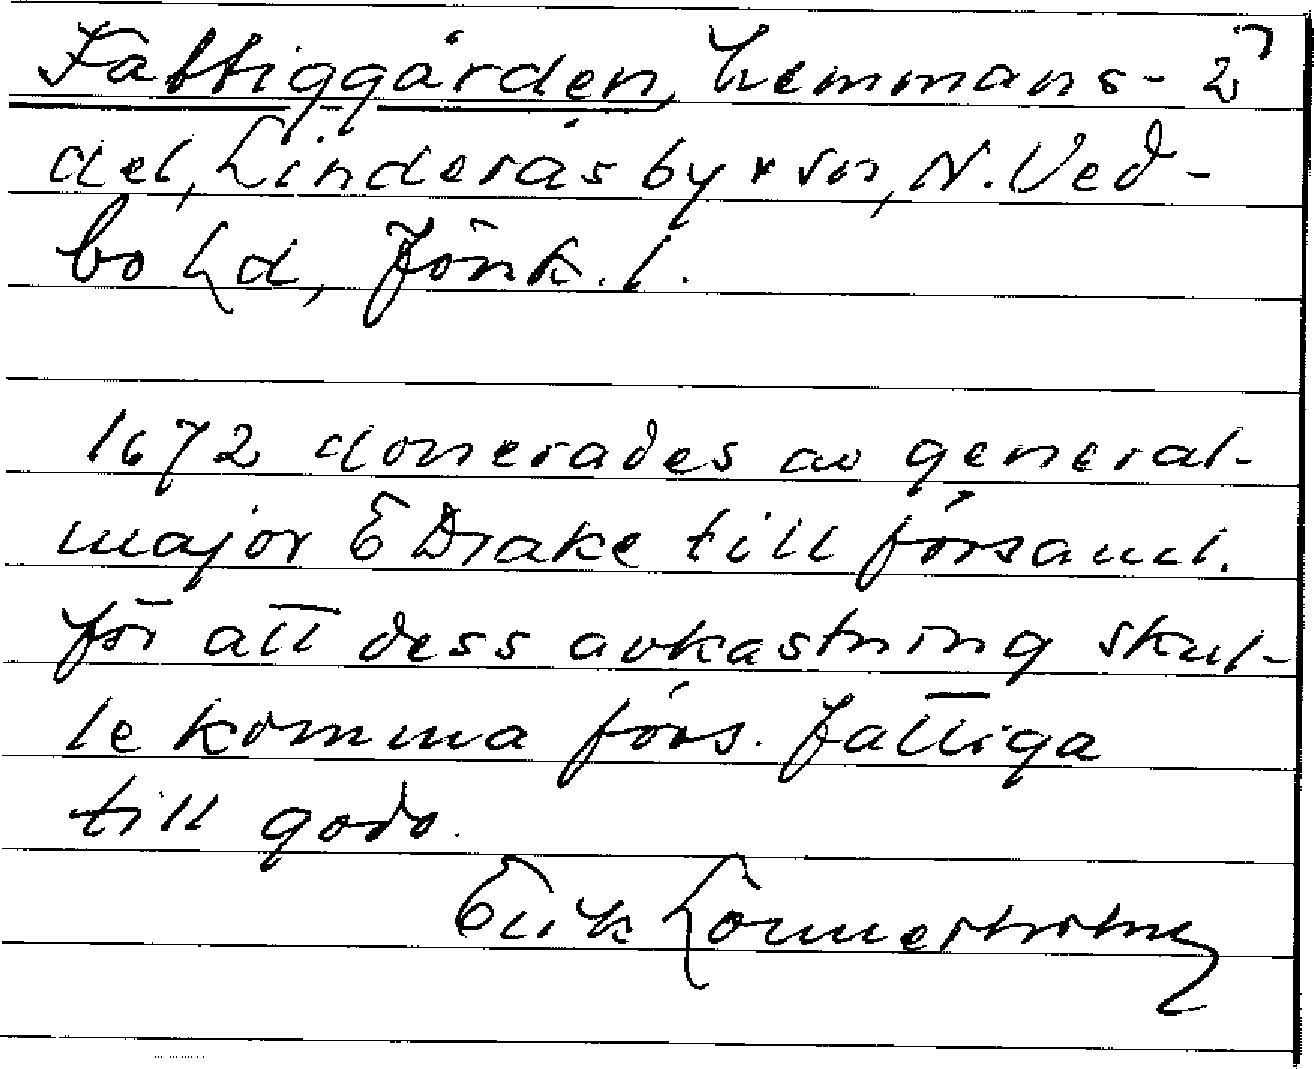 Fattiggården, hemmans-
del, Linderås by × sn, N. Ved-
bo hd, Jönk. l.
1672 donerades av general-
major E Drake till församl.
för att dess avkastning skul-
le komma förs. fattiga
till godo.
Erik Lönnerholm